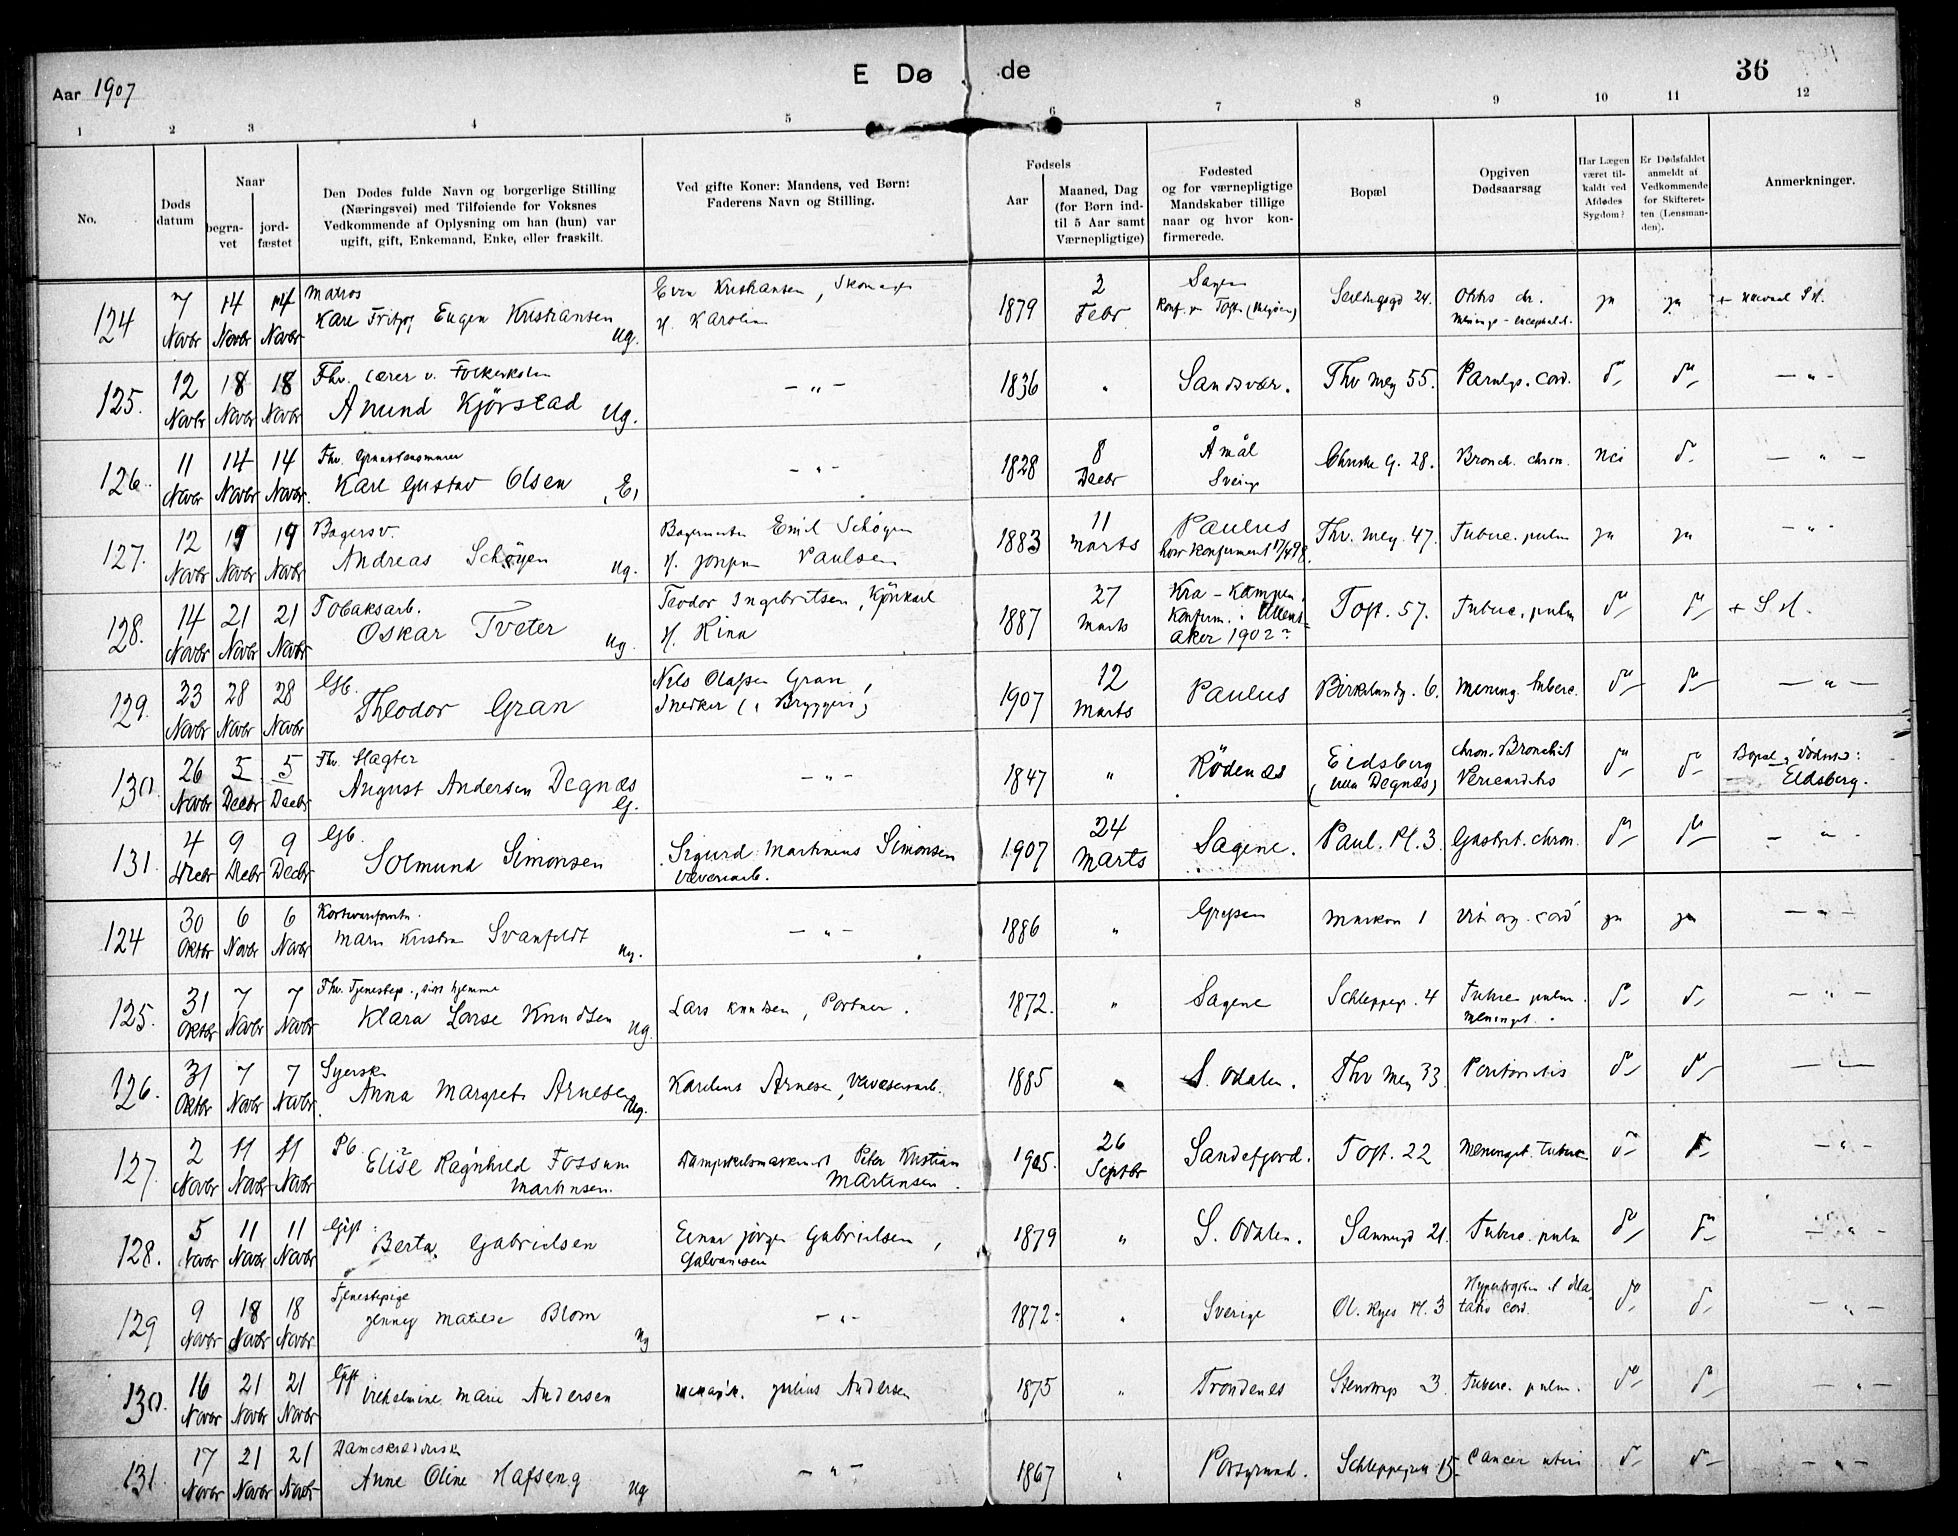 Aar 1907
E Dø de
36
1 2 3 4 5 6 7 8 9 10 11 12
No.
Døds datum
Naar
begra-vet
jord-fæstet
Den Dødes fulde Navn og borgerlige Stilling
(Næringsvei) med Tilføiende for Voksnes
Vedkommende af Oplysning om han (hun) var
ugift, gift, Enkemand, Enke, eller fraskilt.
Ved gifte Koner: Mandens, ved Børn:
Faderens Navn og Stilling.
Fødsels
Aar
Maaned, Dag
(for Børn ind-
til 5 Aar samt
Værnepligtige)
Fødested
og for værnepligtige
Mandskaber tillige
naar og hvor kon-
firmerede.
Bopæl
Opgiven
Dødsaarsag
Har Lægen
været til-
kaldt ved
Afdødes
Sygdom?
Er Dødsfaldet
anmeldt af
Vedkommende
for Skifteret-
ten (Lensman-
den).
Anmerkninger.
Matros
124 7 Novbr 14 Novbr 14 Novbr Karl Fritjof Eugen Kristiansen ug. Even Kristiansen, H. Karolin 1879 2 Febr Sagen 24. ja ja
Fhv. lærer v. Folkeskolen
125. 12 Novbr 18 Novbr 18 Novbr Anund Kjörstad ug. — „ — 1836 „ Sandsvær. Thv mey 55. Paralys. cord. do do — „ —
126. 11 Novbr 14 Novbr 14 Novbr Karl Gustav Olsen E, — „ — 1828 8 Decbr Åmål Sverige G. 28. Bronch. chron. nei do — „ —
Bagersv.
127. 12 Novbr 19 Novbr 19 Novbr Andreas Schøyen ug. Bagermester Emil Schøyen H. Paulsen 1883 11 Marts Paulus Thv. mey. 47. Tuberc. pulm ja ja — „ —
Tobaksarb.
128. 14 Novbr 21 Novbr 21 Novbr Oskar Tveter ug. Teodor Ingebritsen, H. Kina 1887 27 Marts Kra - Kampen. Konfirm. i Ullens-aker 1902 Toft. 57. Tuberc. pulm do do
Gb.
129. 23 Novbr 28 Novbr 28 Novbr Theodor Gran Nils Olafsen Gran, Snedker (i Bryggeri) 1907 12 Marts Paulus Birkelundg. 6. Mening. tuberc. do do — „ —
Fhv. Slagter
130. 26 Novbr 5 Decbr 5 Decbr August Andersen Degnæs G. — „ — 1847 „ Rödenæs Eidsberg (Villa Degnæs) chron. Bronchit Pericarditis do do Bopæl og Eidsberg.
Gb.
131. 4 Decbr 9 Decbr 9 Decbr Solmund Simonsen Sigurd Martinius Simonsen Væveriarb. 1907 24 Marts Sagene. Paul. Pl. 3 Gastrit. chron. do do — „ —
124 30 Oktbr 6 Novbr 6 Novbr Svanfeldt ug. — „ — 1886 „ Grefsen 1 Vit. org. cord ja ja — „ —
Fhv. Tjenestep., sist hjemme
125. 31 Oktbr 7 Novbr 7 Novbr Klara Knudsen ug. Lars Knudsen, Portner. 1872. „ Sagene Schleppegr. 4 Tuberc. pulm. meningit. do do — „ —
Syersk
126. 31 Oktbr 7 Novbr 7 Novbr Anna Margrete Arnesen ug. Karelius Arnesen, 1885 „ S. Odalen. Thv mey 33 Peritonitis do do
Pb.
127. 2 Novbr 11 Novbr 11 Novbr Elise Ragnhild Fossum Martinsen. Peter Kristian Martinsen. 1905. 26 Septbr Sandefjord. Toft. 22 Meningit. tuberc do do — „ —
Gift
128. 5 Novbr 11 Novbr 11 Novbr Berta Gabrielsen Einar Jörgen Gabrielsen, 1879 „ S. Odalen. Sannergd 21. Tuberc. pulm do do — „ —
Tjenestepige
129 9 Novbr 18 Novbr 18 Novbr Jenny Matilde Blom ug — „ — 1872 „ Sverige Ol. Ryes Pl. 3 Hypertrophia et dila-tatio cord. do do — „ —
Gift
130. 16 Novbr 21 Novbr 21 Novbr Vilhelmine Marie Andersen Julius Andersen 1875 „ Trondenes 3 Tuberc. pulm. do do — „ —
Dameskrædderske
131. 17 Novbr 21 Novbr 21 Novbr Anne Oline Hafseng ug — „ — 1867 „ Porsgrund. Schleppegrels 15. Cancer uteri do do — „ —